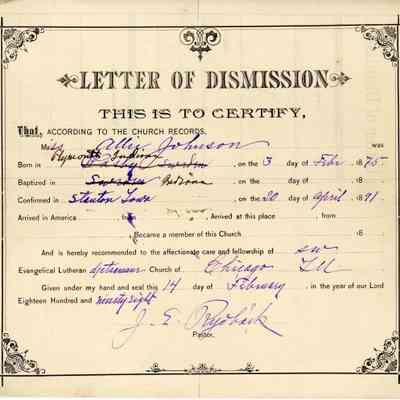 LETTER OF DISMISSION
THIS IS TO CERTIFY,
That, ACCORDING TO THE CHURCH RECORDS,
Miss Allie Johnson was
Plymouth Indiana
Born in Sweden , on the 3 day of Febr. 1875
Baptized in Sweden Indiana , on the day of 18
Confirmed in Stanton Iowa , on the 20 day of April 1891
Arrived in America from Arrived at this place , from
Became a member of this Church 18
And is hereby recommended to the affectionate care and fellowship of sw
Evangelical Lutheran Church of Chicago Ill
Given under my hand and seal this 14 day of February in the year of our Lord
Eighteen Hundred and ninety eight
J. E.
Pastor.